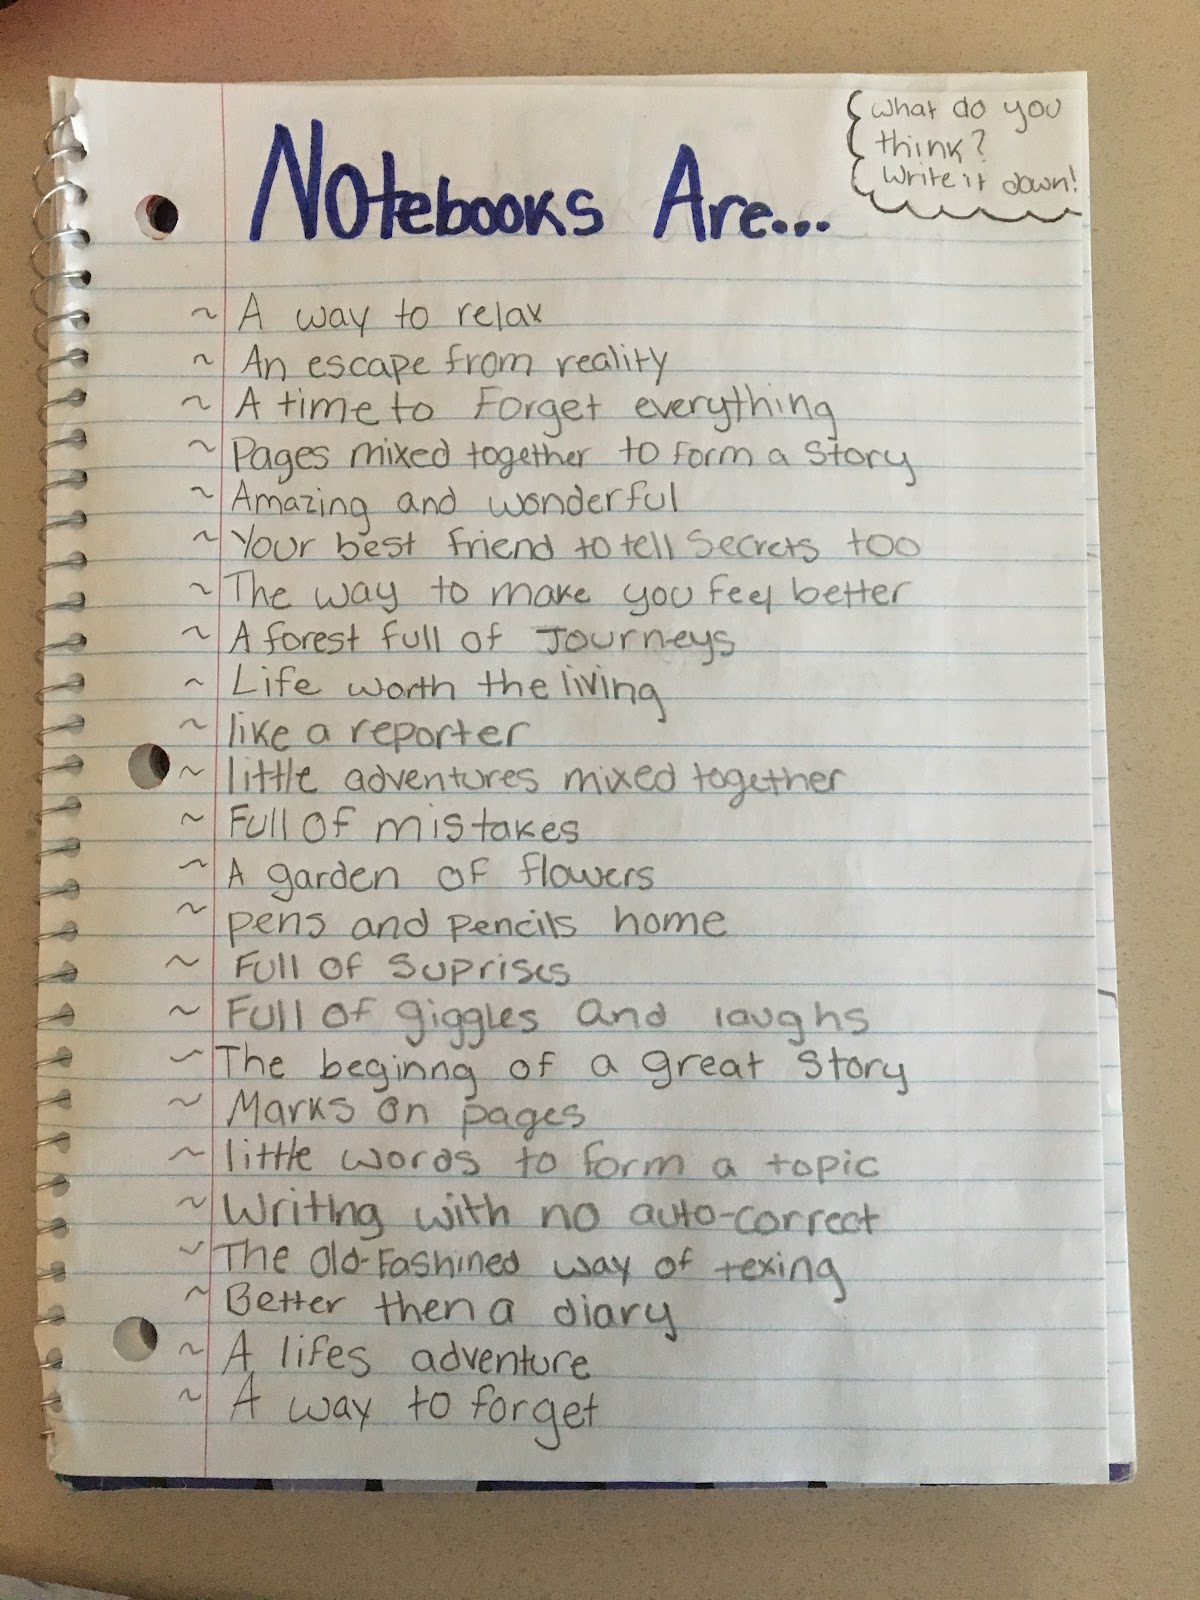 Notebooks Are...
What do you
think?
Write it down!
~ A way to relax
~ An escape from reality
~ A time to Forget everything
~ Pages mixed together to form a story
~ Amazing and wonderful
~ Your best friend to tell secrets too
~ The way to make you feel better
~ A forest full of Journeys
~ Life worth the living
~ like a reporter
~ little adventures mixed together
~ Full of mistakes
~ A garden of flowers
~ pens and pencils home
~ Full of suprises
~ Full of giggles and laughs
~ The beginng of a great story
~ Marks on pages
~ little words to form a topic
~ Writing with no auto-correct
~ The old-fashined way of texing
~ Better then a diary
~ A lifes adventure
~ A way to forget